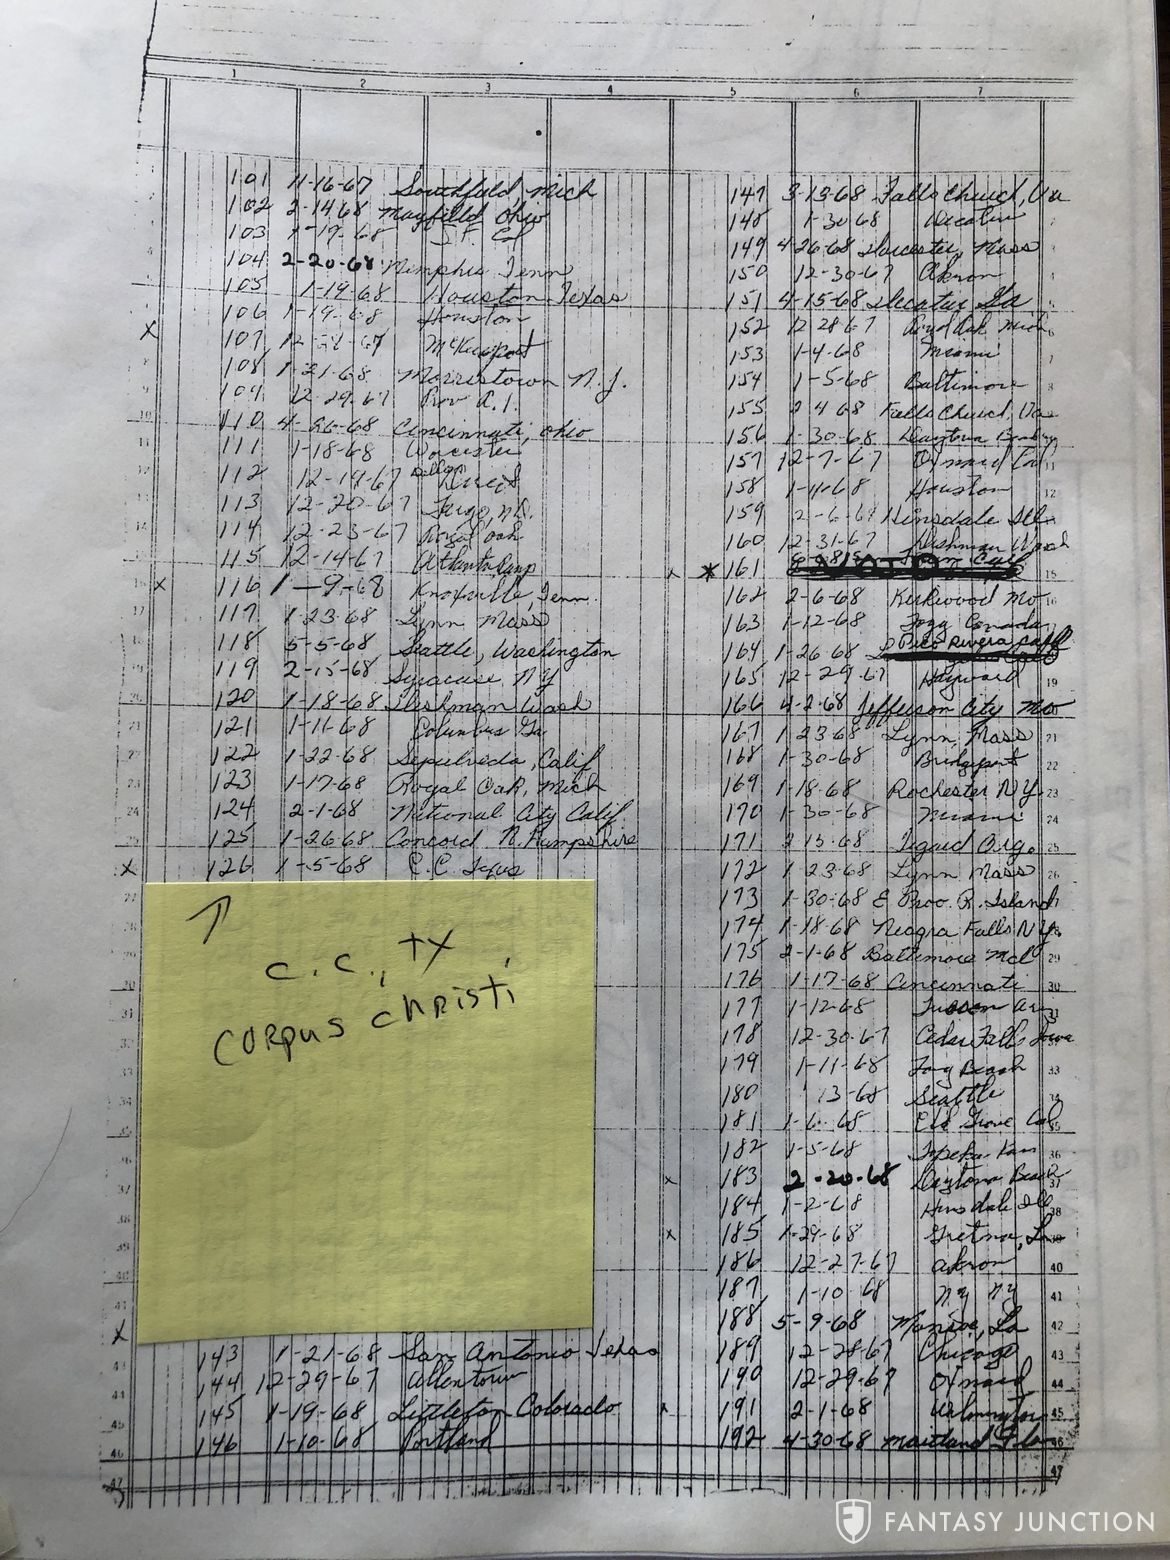 1 2 3 4 5 6 7
101 11-16-67 Southfield, Mich
102 2-14-68 Mayfield Ohio
103 1-19-68 S.F. Cal
104 2-20-68 Memphis Tenn
105 1-19-68 Houston Texas
106 1-19-68 Houston
X
107 12-28-67 McKeesport
108 1-21-68 Morristown N.J.
109 12-29-67 Prov R.I.
110 4-26-68 Cincinnati, Ohio
111 1-18-68 Worcester
112 12-19-67
113 12-20-67 Fargo, N.D.
114 12-23-67 Royal Oak
115 12-14-67 Atlanta
X 116 1-9-68 Knoxville, Tenn.
117 1-23-68 Lynn Mass
118 5-5-68 Seattle, Washington
119 2-15-68 Syracuse N.Y
120 1-18-68 Dishman Wash
121 1-11-68 Columbus Ga
122 1-22-68 Sepulveda, Calif
123 1-17-68 Royal Oak, Mich
124 2-1-68 National City Calif
125 1-26-68 Concord N. Hampshire
X 126 1-5-68 C.C. Texas
C.C., TX,
CORPUS CHRISTI
X
143 1-21-68 San Antonio Texas
144 12-29-67 Allentown
145 1-19-68 Littleton Colorado
146 1-10-68 Portland
147 3-13-68 Falls Church, Va
148 1-30-68 Decatur
149 4-26-68 Worcester, Mass
150 12-30-67 Akron
151 4-15-68 Decatur Ga
152 12-28-67 Royal Oak Mich
153 1-4-68 Miami
154 1-5-68 Baltimore
155 2-4-68 Falls Church, Va
156 1-30-68 Daytona
157 12-7-67 Oxnard Cal
158 1-11-68 Houston
159 2-6-68 Hinsdale Ill
160 12-31-67 Dishman Wash
X * 161 VOID
162 2-6-68 Kirkwood Mo
163 1-12-68 Canada
164 1-26-68 Pico Rivera Calf
165 12-29-67 Hayward
166 4-2-68 Jefferson City Mo
167 1-23-68 Lynn Mass
168 1-30-68 Bridgeport
169 1-18-68 Rochester N.Y.
170 1-30-68 Miami
171 2-13-68 Tigard Org.
172 1-23-68 Lynn Mass
173 1-30-68 E Prov. R. Island
174 1-18-68 Niagra Falls N.Y.
175 2-1-68 Baltimore Md
176 1-17-68 Cincinnati
177 1-12-68 Tucson
178 12-30-67 Cedar Falls Iowa
179 1-11-68 Long Beach
180 13-68 Seattle
181 1-6-68 Elk Grove Cal
182 1-5-68 Topeka Kan
X 183 2-20-68 Daytona Beach
184 1-2-68 Hinsdale Ill
X 185 1-29-68 Gretna, La
186 12-27-67 Akron
187 1-10-68 N.Y. N.Y
188 5-9-68 Monroe, La
189 12-28-67 Chicago
190 12-29-67 Oxnard
X 191 2-1-68 Wilmington
192 4-30-68 Maitland Fla
FANTASY JUNCTION